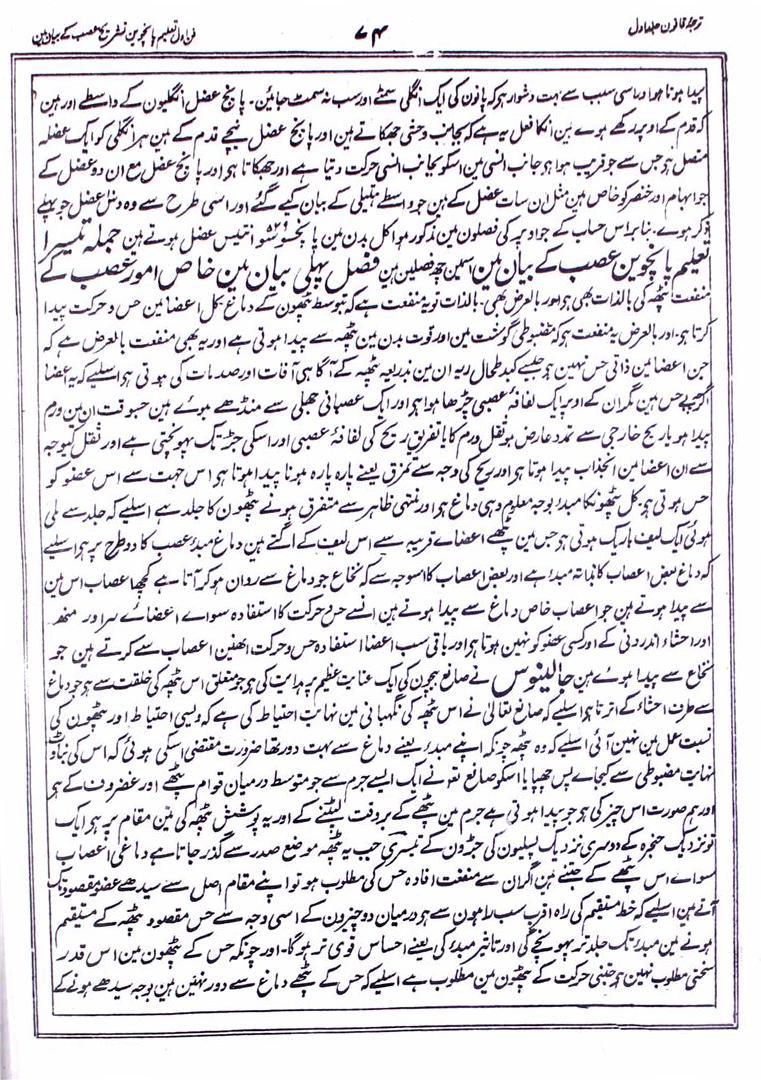 ترجمۂ قانون جلد اول
۷۴
فن اول تعلیم پانچوین تشریح عصب کے بیان مین
پیدا ہونا ہوا ور اسی سبب سے بہت دشوار ہو کہ پانون کی ایک انگلی سمٹے اور سب نہ سمٹ جائین۔ پانچ عضل انگلیون کے واسطے اور ہین
کہ قدم کے اوپر رکھے ہوے ہین انکا فعل یہ ہے کہ بجانب وحشی جھکاتے ہین اور پانچ عضل نیچے قدم کے ہین ہر انگلی کو ایک عضلہ
متصل ہو جس سے جو قریب ہوا ہو جانب انسی مین اسکو بجانب انسی حرکت دیتا ہے اور جھکاتا ہو اور پانچ عضل مع ان دو عضل کے
جو ابہام اور خنصر کو خاص ہین مثل ان سات عضل کے ہین جو واسطے ہتیلی کے بیان کیے گئے اور اسی طرح سے وہ دس عضل جو پہلے
ذکر ہوے۔ بنا بر اس حساب کے جو اوپر کی فصلون مین مذکور ہوا کل بدن مین پانچسو انتیس عضل ہوتے ہین جملہ تیسرا
تعلیم پانچوین عصب کے بیان مین اسمین چھ فصلین ہین فصل پہلی بیان مین خاص امور عصب کے
منفعت پٹھہ کی بالذات بھی ہو اور بالعرض بھی۔ بالذات تو یہ منفعت ہے کہ بتوسط پٹھون کے دماغ کل اعضا مین حس و حرکت پیدا
کرتا ہو۔ اور بالعرض یہ منفعت ہو کہ مضبوطی گوشت مین اور قوت بدن مین پٹھہ سے پیدا ہوتی ہے اور یہ بھی منفعت بالعرض ہے کہ
جن اعضا مین ذاتی حس نہین ہو جیسے کبد طحال ریہ ان مین بذریعہ پٹھہ کے آگاہی آفات اور صدمات کی ہوتی ہو اسلیے کہ یہ اعضا
اگرچہ بے حس ہین مگر ان کے اوپر ایک لفافۂ عصبی چڑھا ہوا ہو اور ایک عصبانی جھلی سے منڈھے ہوے ہین جسوقت ان مین ورم
پیدا ہو یا ریح خارجی سے تمدد عارض ہو ثقل ورم کا یا تفریق ریح کی لفافۂ عصبی اور اسکی جڑ تک پہونچتی ہے اور ثقل کیوجہ
سے ان اعضا مین انجذاب پیدا ہوتا ہو اور ریح کی وجہ سے تمزق یعنے پارہ پارہ ہونا پیدا ہوتا ہو اس جہت سے اس عضو کو
حس ہوتی ہو۔ کل پٹھونکا مبدا بوجہ معلوم وہی دماغ ہو اور منتہی ظاہر سے متفرق ہونے پٹھون کا جلد ہے اسلیے کہ جلد سے ملی
ہوئی ایک لیف باریک ہوتی ہو جس مین پٹھے اعضاے قریبہ سے اس لیف کے اگتے ہین دماغ مبدا عصب کا دو طرح پر ہو اسلیے
کہ دماغ بعض اعصاب کا بذاتہ مبدا ہے اور بعض اعصاب کا اسوجہ سے کہ نخاع جو دماغ سے روان ہو کر آتا ہے کچھ اعصاب اس مین
سے پیدا ہوتے ہین جو اعصاب خاص دماغ سے پیدا ہوتے ہین انسے حس و حرکت کا استفادہ سواے اعضاے سر اور منھ
اور احشاء اندرونی کے اور کسی عضو کو نہین ہوتا ہو اور باقی سب اعضا استفادہ حس و حرکت انھین اعصاب سے کرتے ہین جو
نخاع سے پیدا ہوے ہین جالینوس نے صانع بیچون کی ایک عنایت عظیم پر ہدایت کی ہو جو متعلق اس پٹھہ کی خلقت سے ہو جو دماغ
سے طرف احشاء کے اترتا ہو اسلیے کہ صانع تعالیٰ نے اس پٹھہ کی نگہبانی مین نہایت احتیاط کی ہے کہ ویسی احتیاط اور پٹھون کی
نسبت عمل مین نہین آئی اسلیے کہ وہ پٹھہ چونکہ اپنے مبدء یعنے دماغ سے بہت دور تھا ضرورت مقتضی اسکی ہوئی کہ اس کی بناوٹ
نہایت مضبوطی سے کیجاے پس چھپایا اسکو صانع نے ایک ایسے جرم سے جو متوسط درمیان قوام پٹھے اور غضروف کے ہو
اور ہم صورت اس چیز کی ہو جو پیدا ہوتی ہے جرم مین پٹھے کے بروقت لپٹنے کے اور یہ پوشش پٹھہ کی تین مقام پر ہو ایک
تو نزدیک حنجرہ کے دوسری نزدیک پسلیون کی جڑون کے تیسری جب یہ پٹھہ موضع صدر سے گذر جاتا ہے دماغی اعصاب
سواے اس پٹھے کے جتنے ہین اگر ان سے منفعت افادہ حس کی مطلوب ہو تو اپنے مقام اصل سے سیدھے عضو مقصود تک
آتے ہین اسلیے کہ خط مستقیم کی راہ اقرب سب راہون سے ہو درمیان دو چیزون کے اسی وجہ سے حس مقصود پٹھہ کے مستقیم
ہونے مین مبدء تک جلد تر پہونچے گی اور تاثیر مبدء کی یعنے احساس قوی تر ہو گا۔ اور چونکہ حس کے پٹھون مین اس قدر
سختی مطلوب نہین ہو جتنی حرکت کے پٹھون مین مطلوب ہے اسلیے کہ حس کے پٹھے دماغ سے دور نہین ہین بوجہ سیدھے ہونے کے